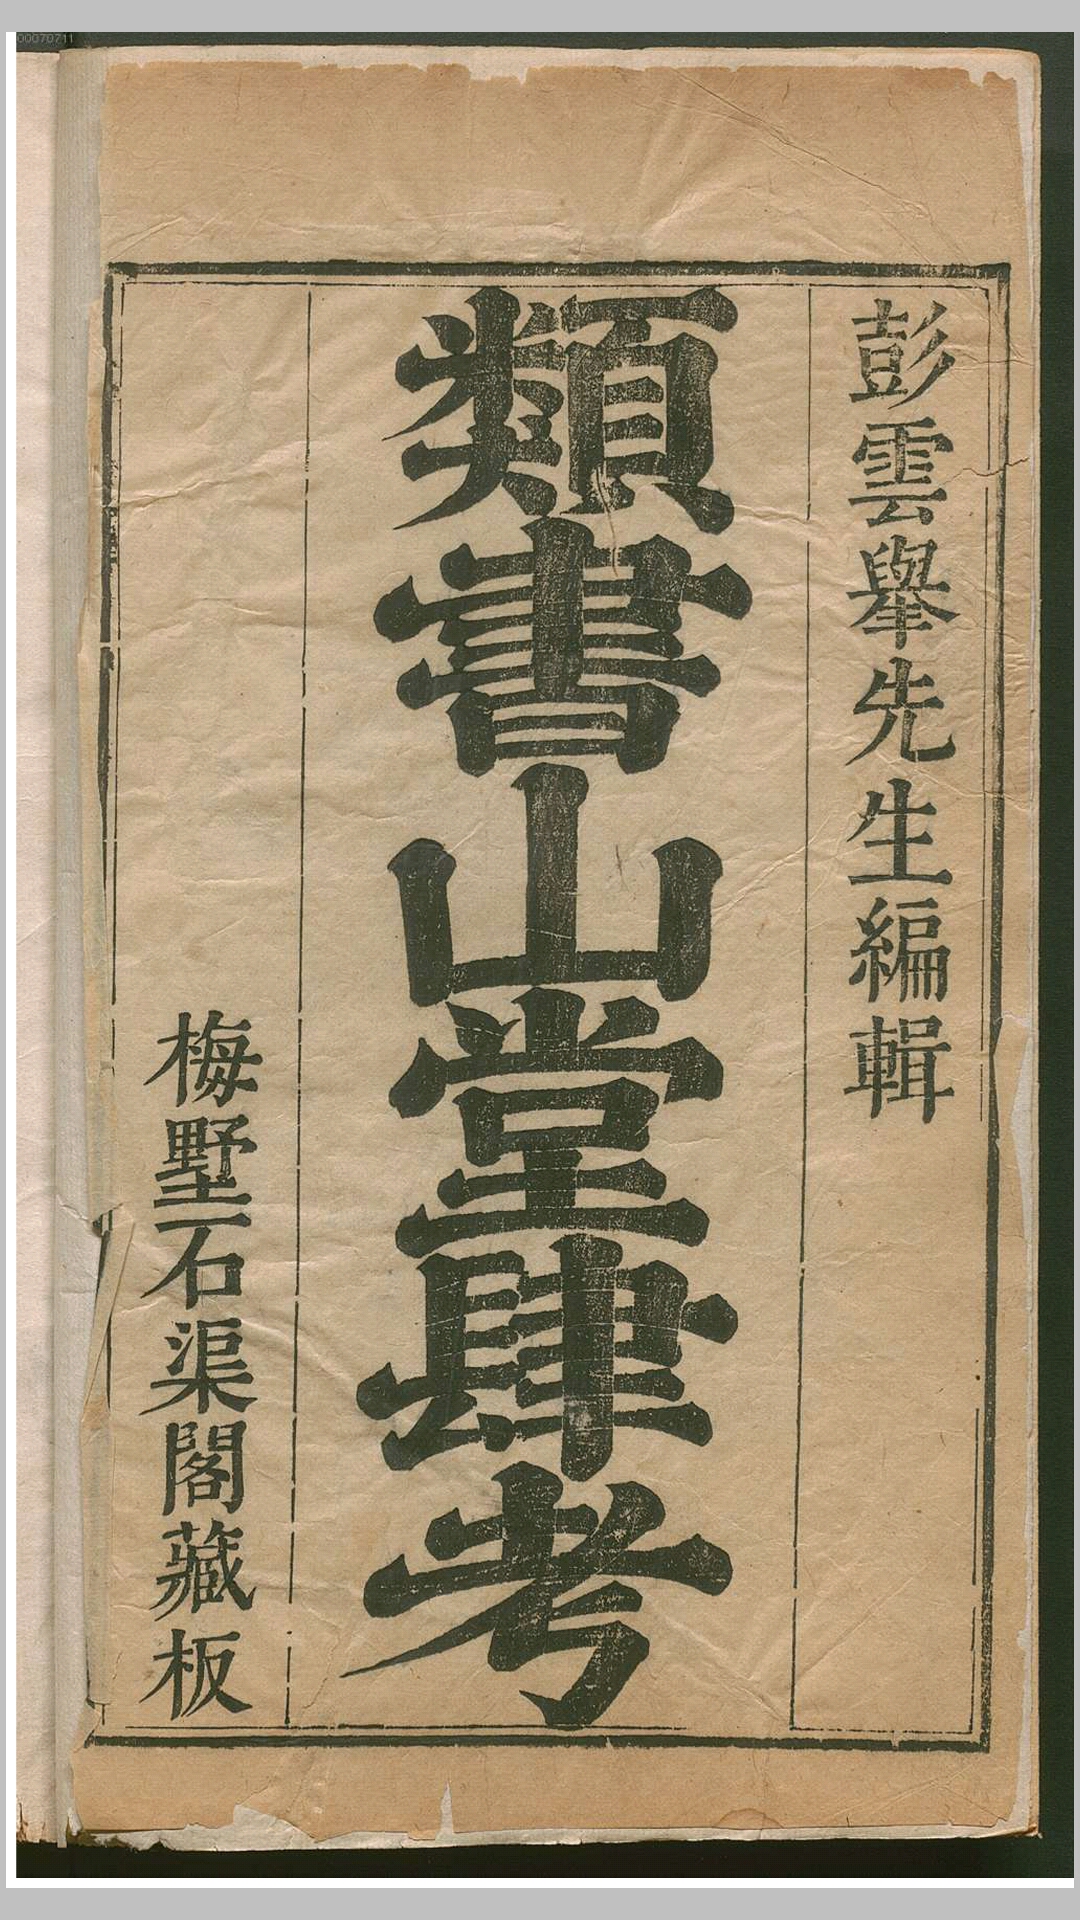 00070711
彭雲舉先生編輯
類書山堂肆考
梅墅石渠閣藏板